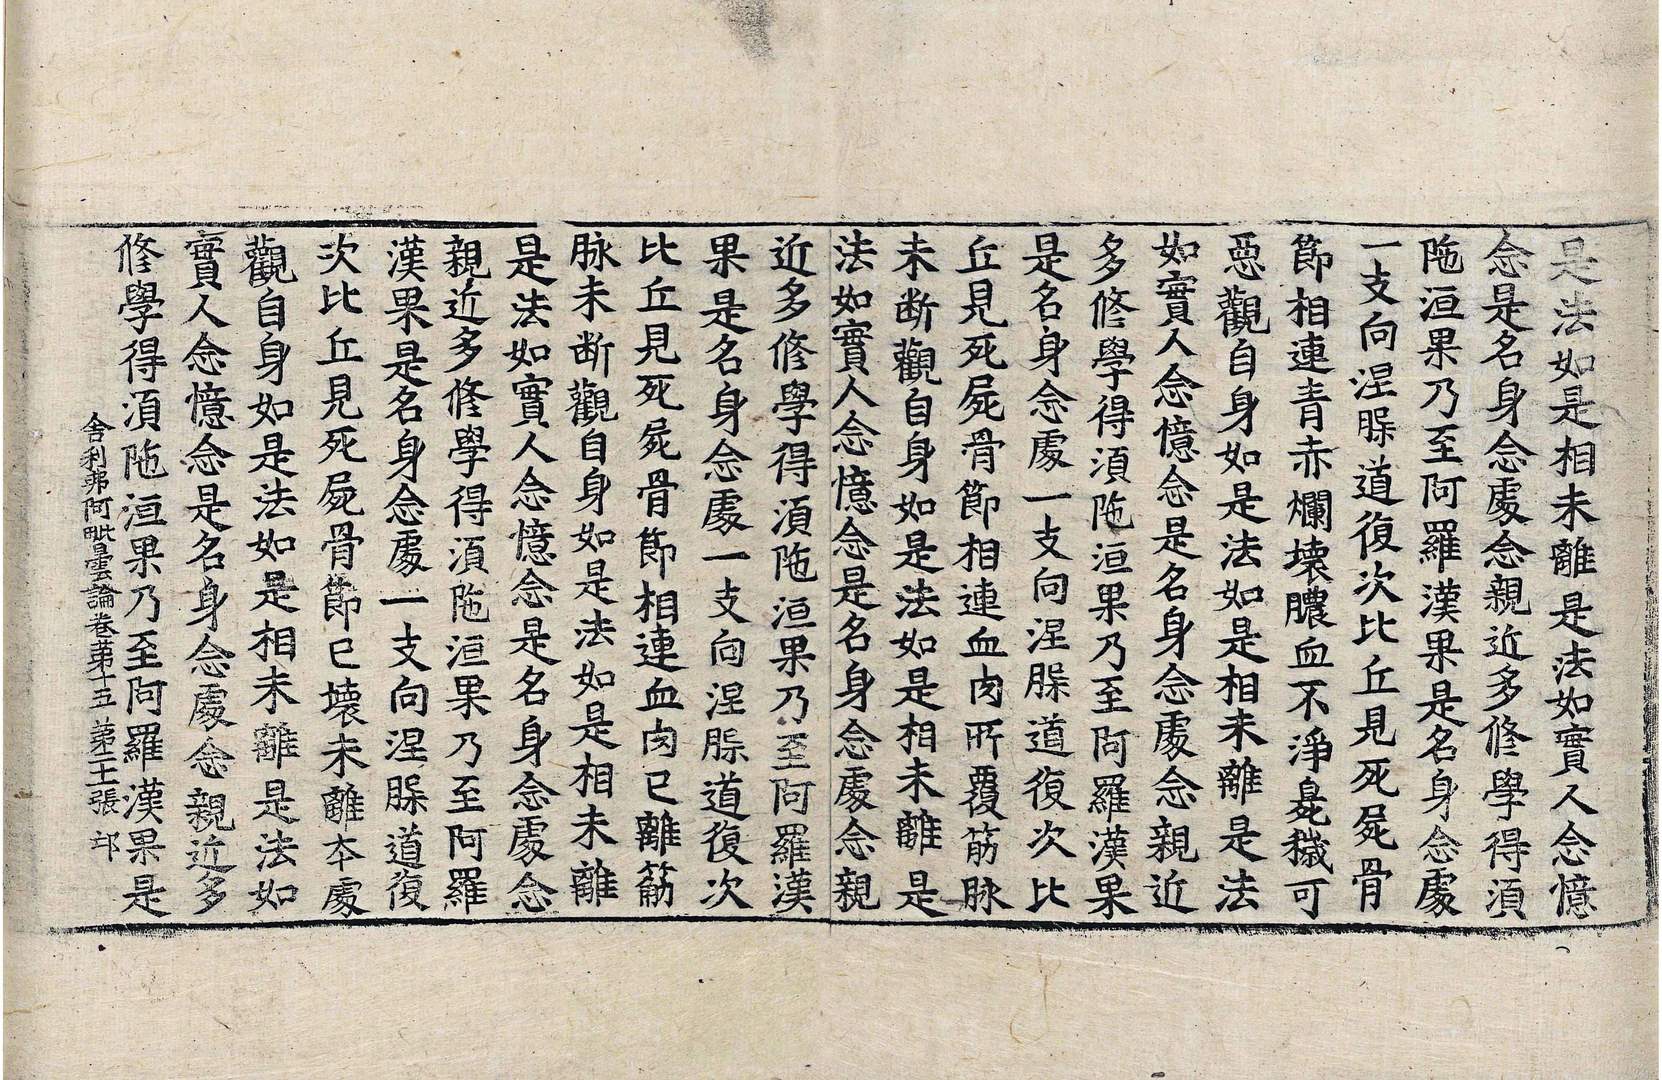 是法如是相未離是法如實人念憶
念是名身念處念親近多修學得須
陁洹果乃至阿羅漢果是名身念處
一支向涅槃道復次比丘見死屍骨
節相連青赤爛壞膿血不淨臭穢可
惡觀自身如是法如是相未離是法
如實人念憶念是名身念處念親近
多修學得須陁洹果乃至阿羅漢果
是名身念處一支向涅槃道復次比
丘見死屍骨節相連血肉所覆筋脉
未断觀自身如是法如是相未離是
法如實人念憶念是名身念處念親
近多修學得須陁洹果乃至阿羅漢
果是名身念處一支向涅槃道復次
比丘見死屍骨節相連血肉已離筋
脉未断觀自身如是法如是相未離
是法如實人念憶念是名身念處念
親近多修學得須陁洹果乃至阿羅
漢果是名身念處一支向涅槃道復
次比丘見死屍骨節已壞未離本處
觀自身如是法如是相未離是法如
實人念憶念是名身念處念親近多
修學得須陁洹果乃至阿羅漢果是
舍利弗阿毗曇論卷第十五 第二十張 邙